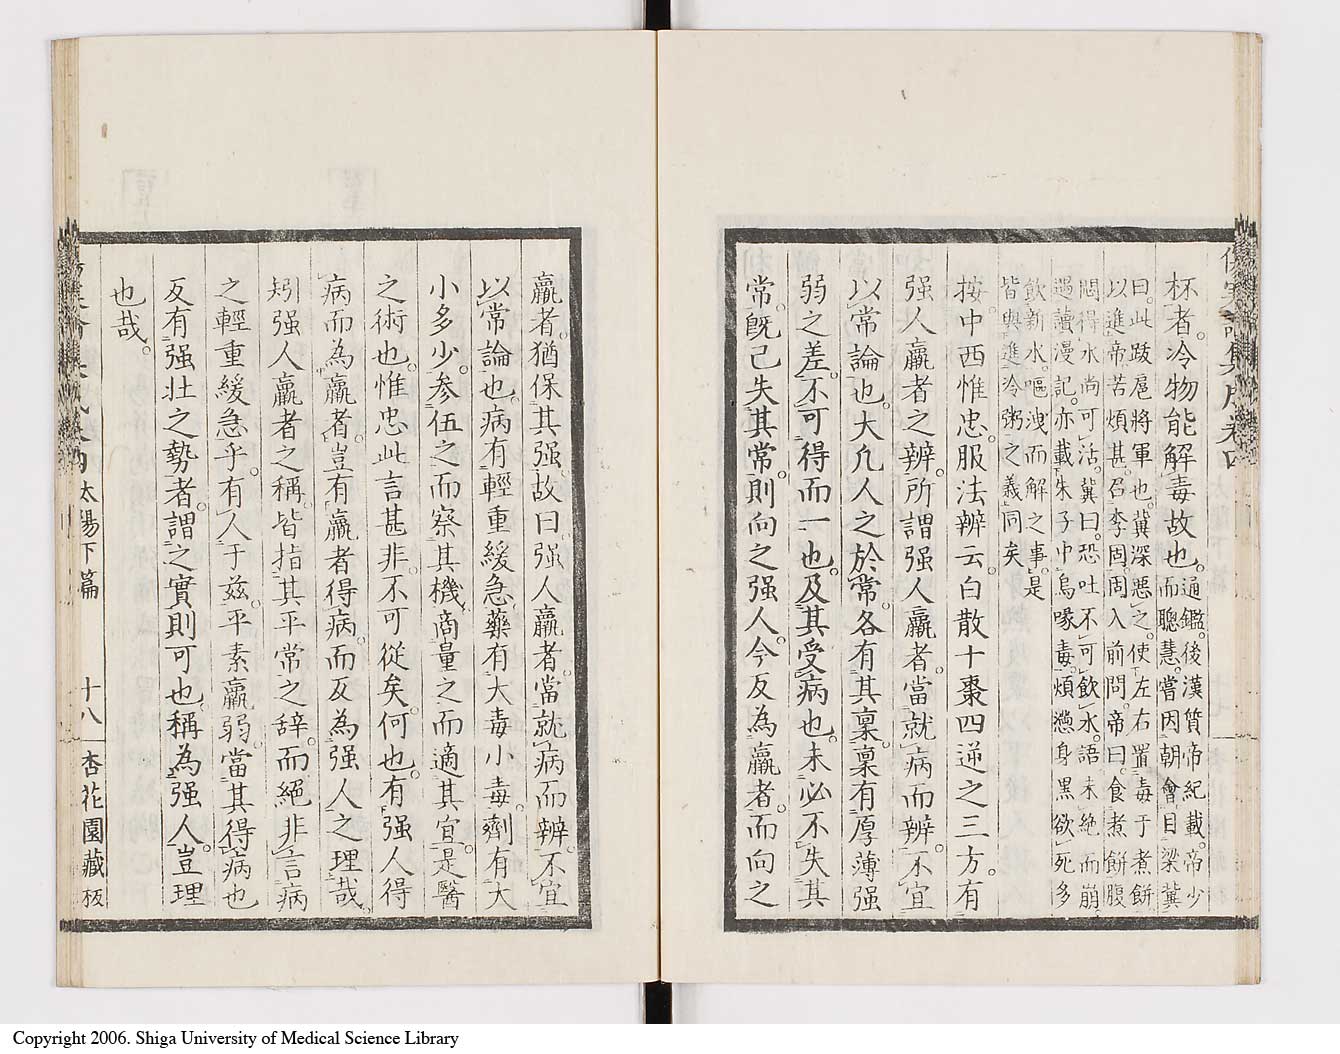 杯者。冷物能解毒故也。通鑑。後漢質帝紀載。帝少
而聰慧。嘗因朝會目梁冀
曰。此跋扈將軍也。冀深惡之。使左右置毒于煮餅
以進。帝苦煩甚。召李固。固入前問。帝曰。食煮餅腹
悶。得水尚可活。冀曰。恐吐不可飲水。語未絶而崩。
過讀漫記。亦載朱子中烏喙毒。煩懣身黑欲死。多
飲新水。嘔洩而解之事。是
皆與進冷粥之義同矣
按。中西惟忠。服法辨云。白散十棗四逆之三方。有
强人羸者之辨。所謂强人羸者。當就病而辨。不宜
以常論也。大凡人之於常。各有其稟。稟有厚薄强
弱之差。不可得而一也。及其受病也。未必不失其
常。既已失其常。則向之强人。今反為羸者。而向之
羸者。猶保其强。故曰。强人羸者。當就病而辨。不宜
以常論也。病有輕重緩急。藥有大毒小毒。劑有大
小多少。參伍之而察其機。商量之而適其宜。是醫
之術也。惟忠此言甚非。不可從矣。何也。有强人得
病而為羸者。豈有羸者得病。而反為强人之理哉。
矧强人羸者之稱。皆指其平常之辞。而絕非言病
之輕重緩急乎。有人于茲。平素羸弱。當其得病也
反有强壮之勢者。謂之實則可也。稱為强人。豈理
也哉。
太陽下篇 十八 杏花園藏板
Copyright 2006. Shiga University of Medical Science Library